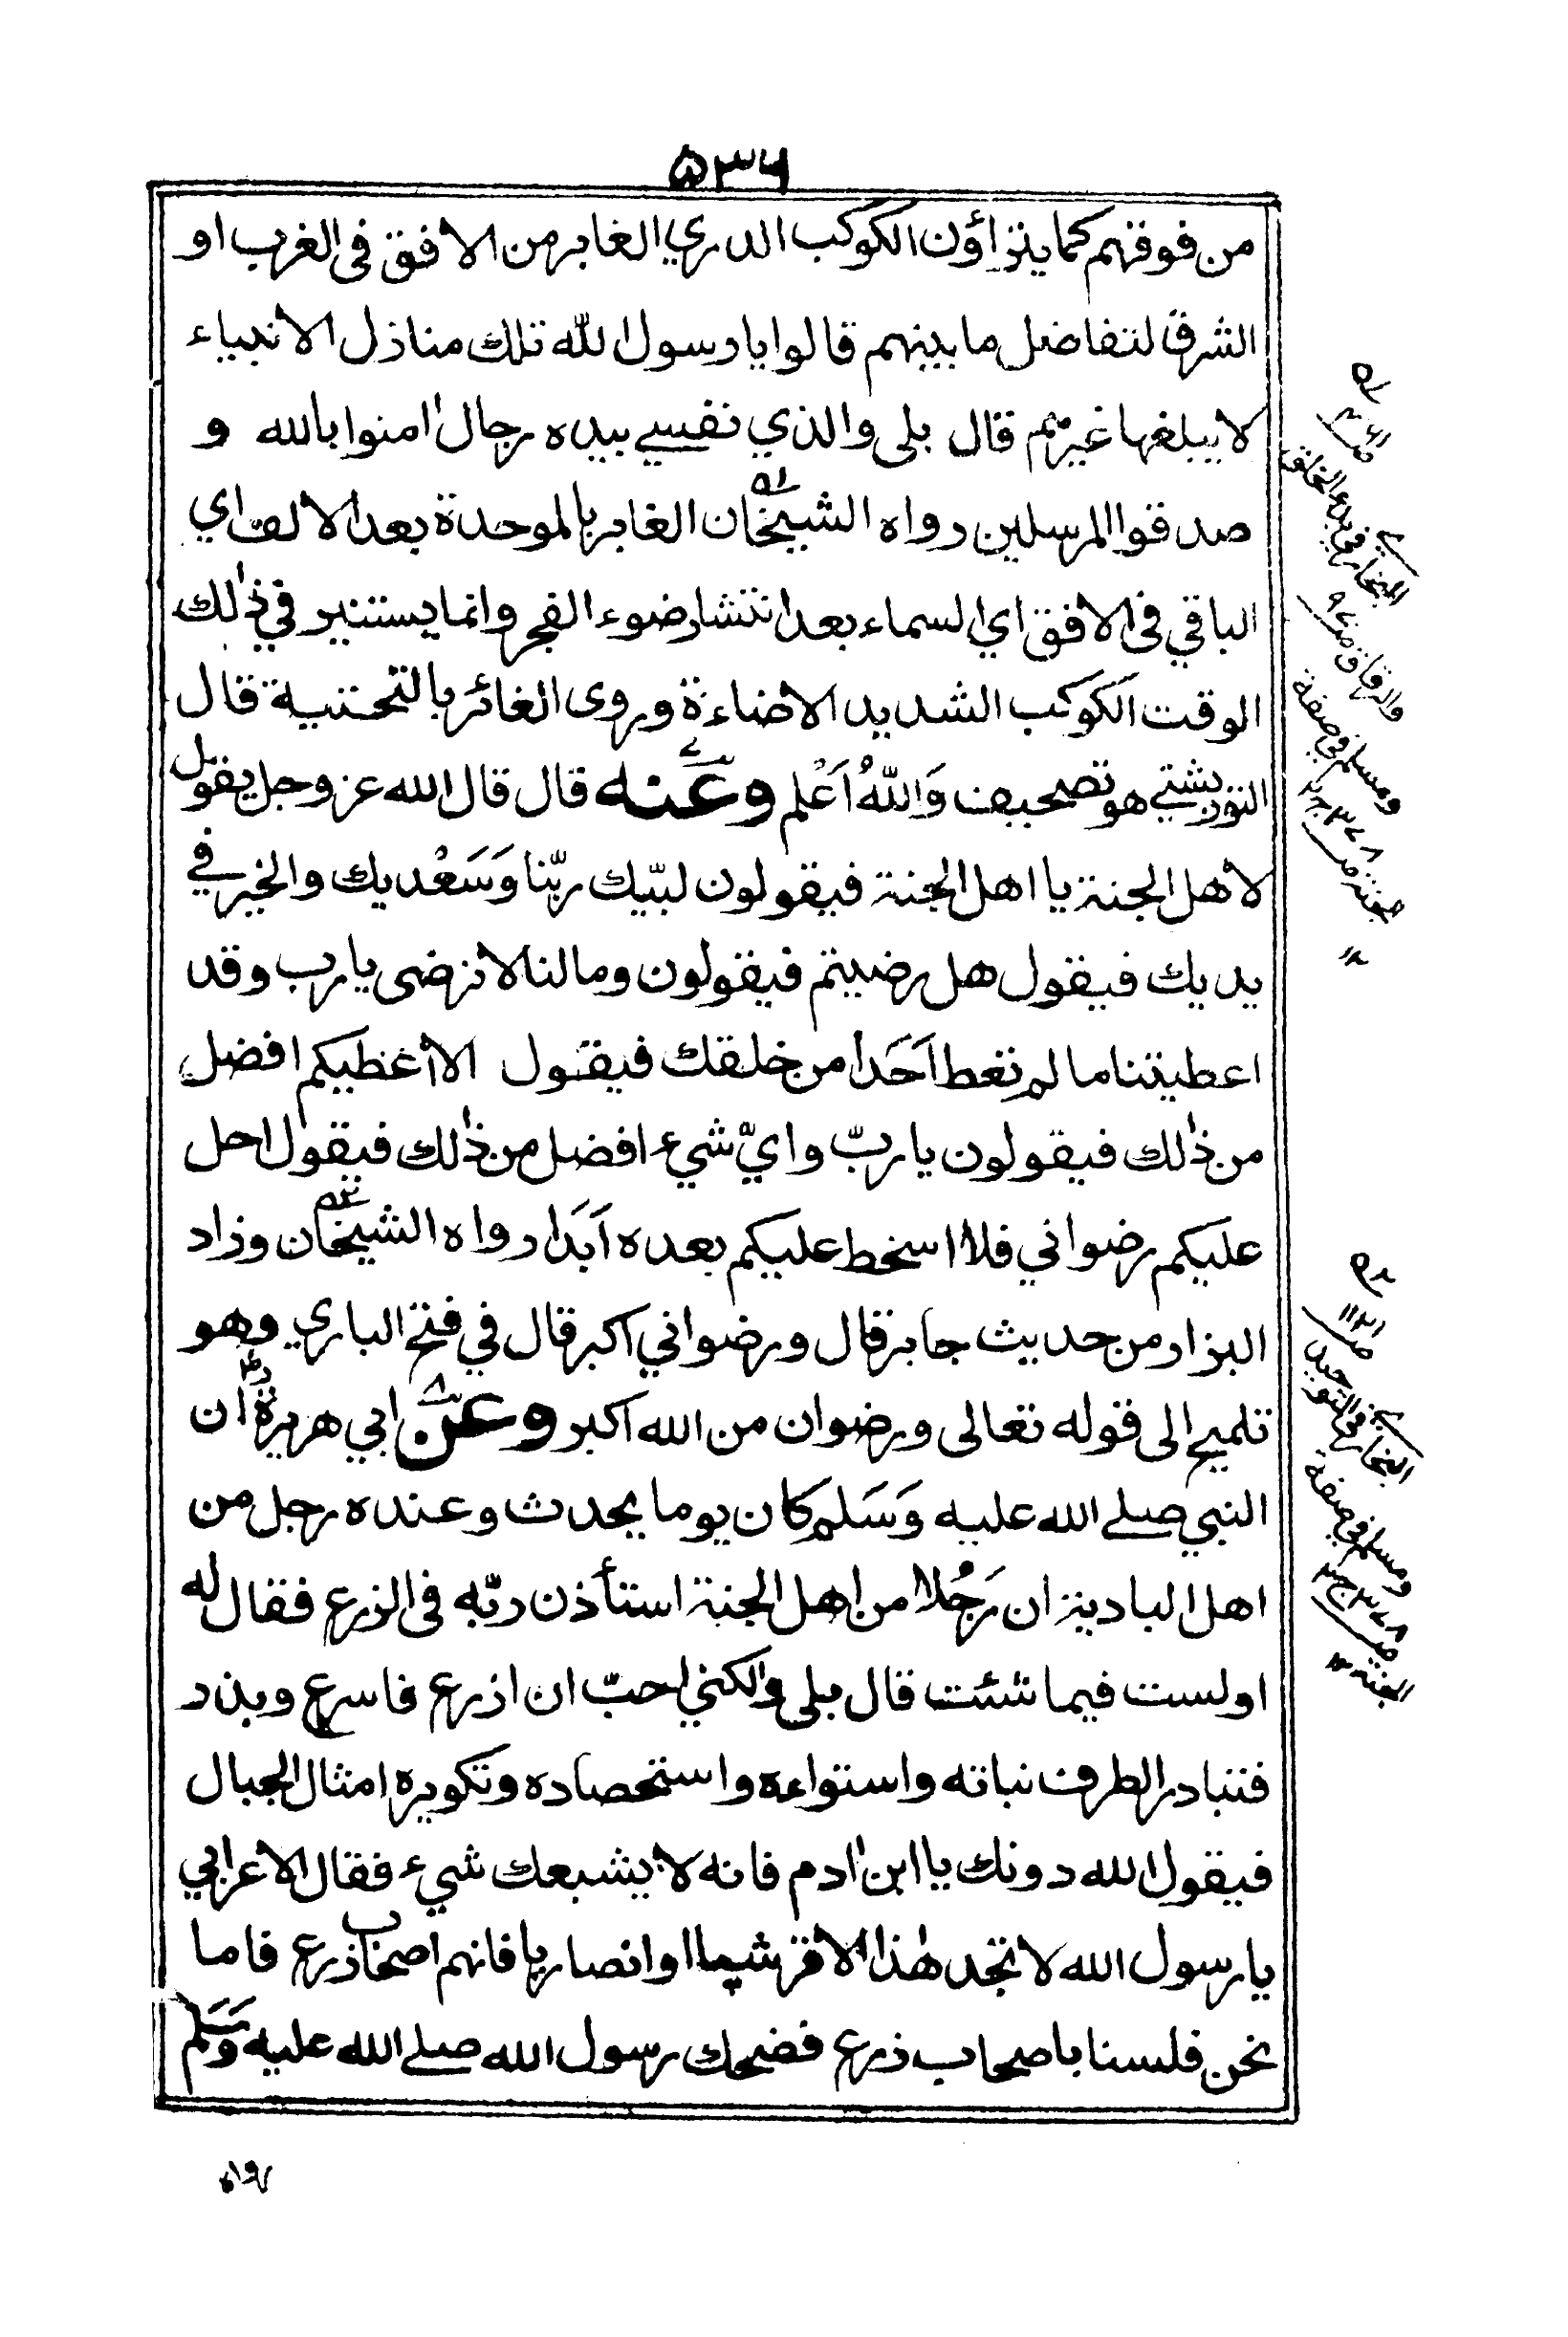 ۵۳۶
من فوقهم كما يتراؤن الكوكب الدري الغابر من الافق فى الغرب او
الشرق لتفاضل ما بينهم قالوا يا رسول الله تلك منازل الانبياء
لا يبلغها غيرهم قال بلى والذي نفسي بيده رجال امنوا بالله و
صدقوا المرسلين رواه الشيخان الغابر بالموحدة بعد الالف اي
الباقي فى الافق اي السماء بعد انتشار ضوء الفجر وانما يستنير في ذلك
الوقت الكوكب الشديد الاضاءة وروى الغائر بالتحتية قال
التوربشتي هو تصحيف وَاللهُ اَعْلم وعنه قال قال الله عز وجل يقول
لاهل الجنة يا اهل الجنة فيقولون لبّيك ربّنا وَسَعْديك والخير في
يديك فيقول هل رضيتم فيقولون وما لنا لا نرضى يا رب وقد
اعطيتنا ما لم تعط اَحَدا من خلقك فيقول الا أعطيكم افضل
من ذلك فيقولون يا ربّ وايّ شيء افضل من ذلك فيقول احل
عليكم رضواني فلا اسخط عليكم بعده اَبَدا رواه الشيخان وزاد
البزار من حديث جابر قال ورضواني اكبر قال في فتح الباري وهو
تلميح الى قوله تعالى ورضوان من الله اكبر وعن ابي هريرة ان
النبي صلے الله عليه وَسَلم كان يوما يحدث وعنده رجل من
اهل البادية ان رَجُلا من اهل الجنة استأذن ربّه فى الزرع فقال له
اولست فيما شئت قال بلى ولكني احبّ ان ازرع فاسرع وبذر
فتبادر الطرف نباته واستواءه واستحصاده وتكويره امثال الجبال
فيقول الله دونك يا ابن ادم فانه لا يشبعك شيء فقال الاعرابي
يا رسول الله لا تجد هذا الا قرشيا او انصاريا فانهم اصحاب زرع فاما
نحن فلسنا باصحاب زرع فضحك رسول الله صلے الله عليه وَسَلم
البخاري في بدء الخلق
والرقاق
ومسلم في صفة
الجنة
۱۲
البخاري في التوحيد
ومسلم في صفة
الجنة